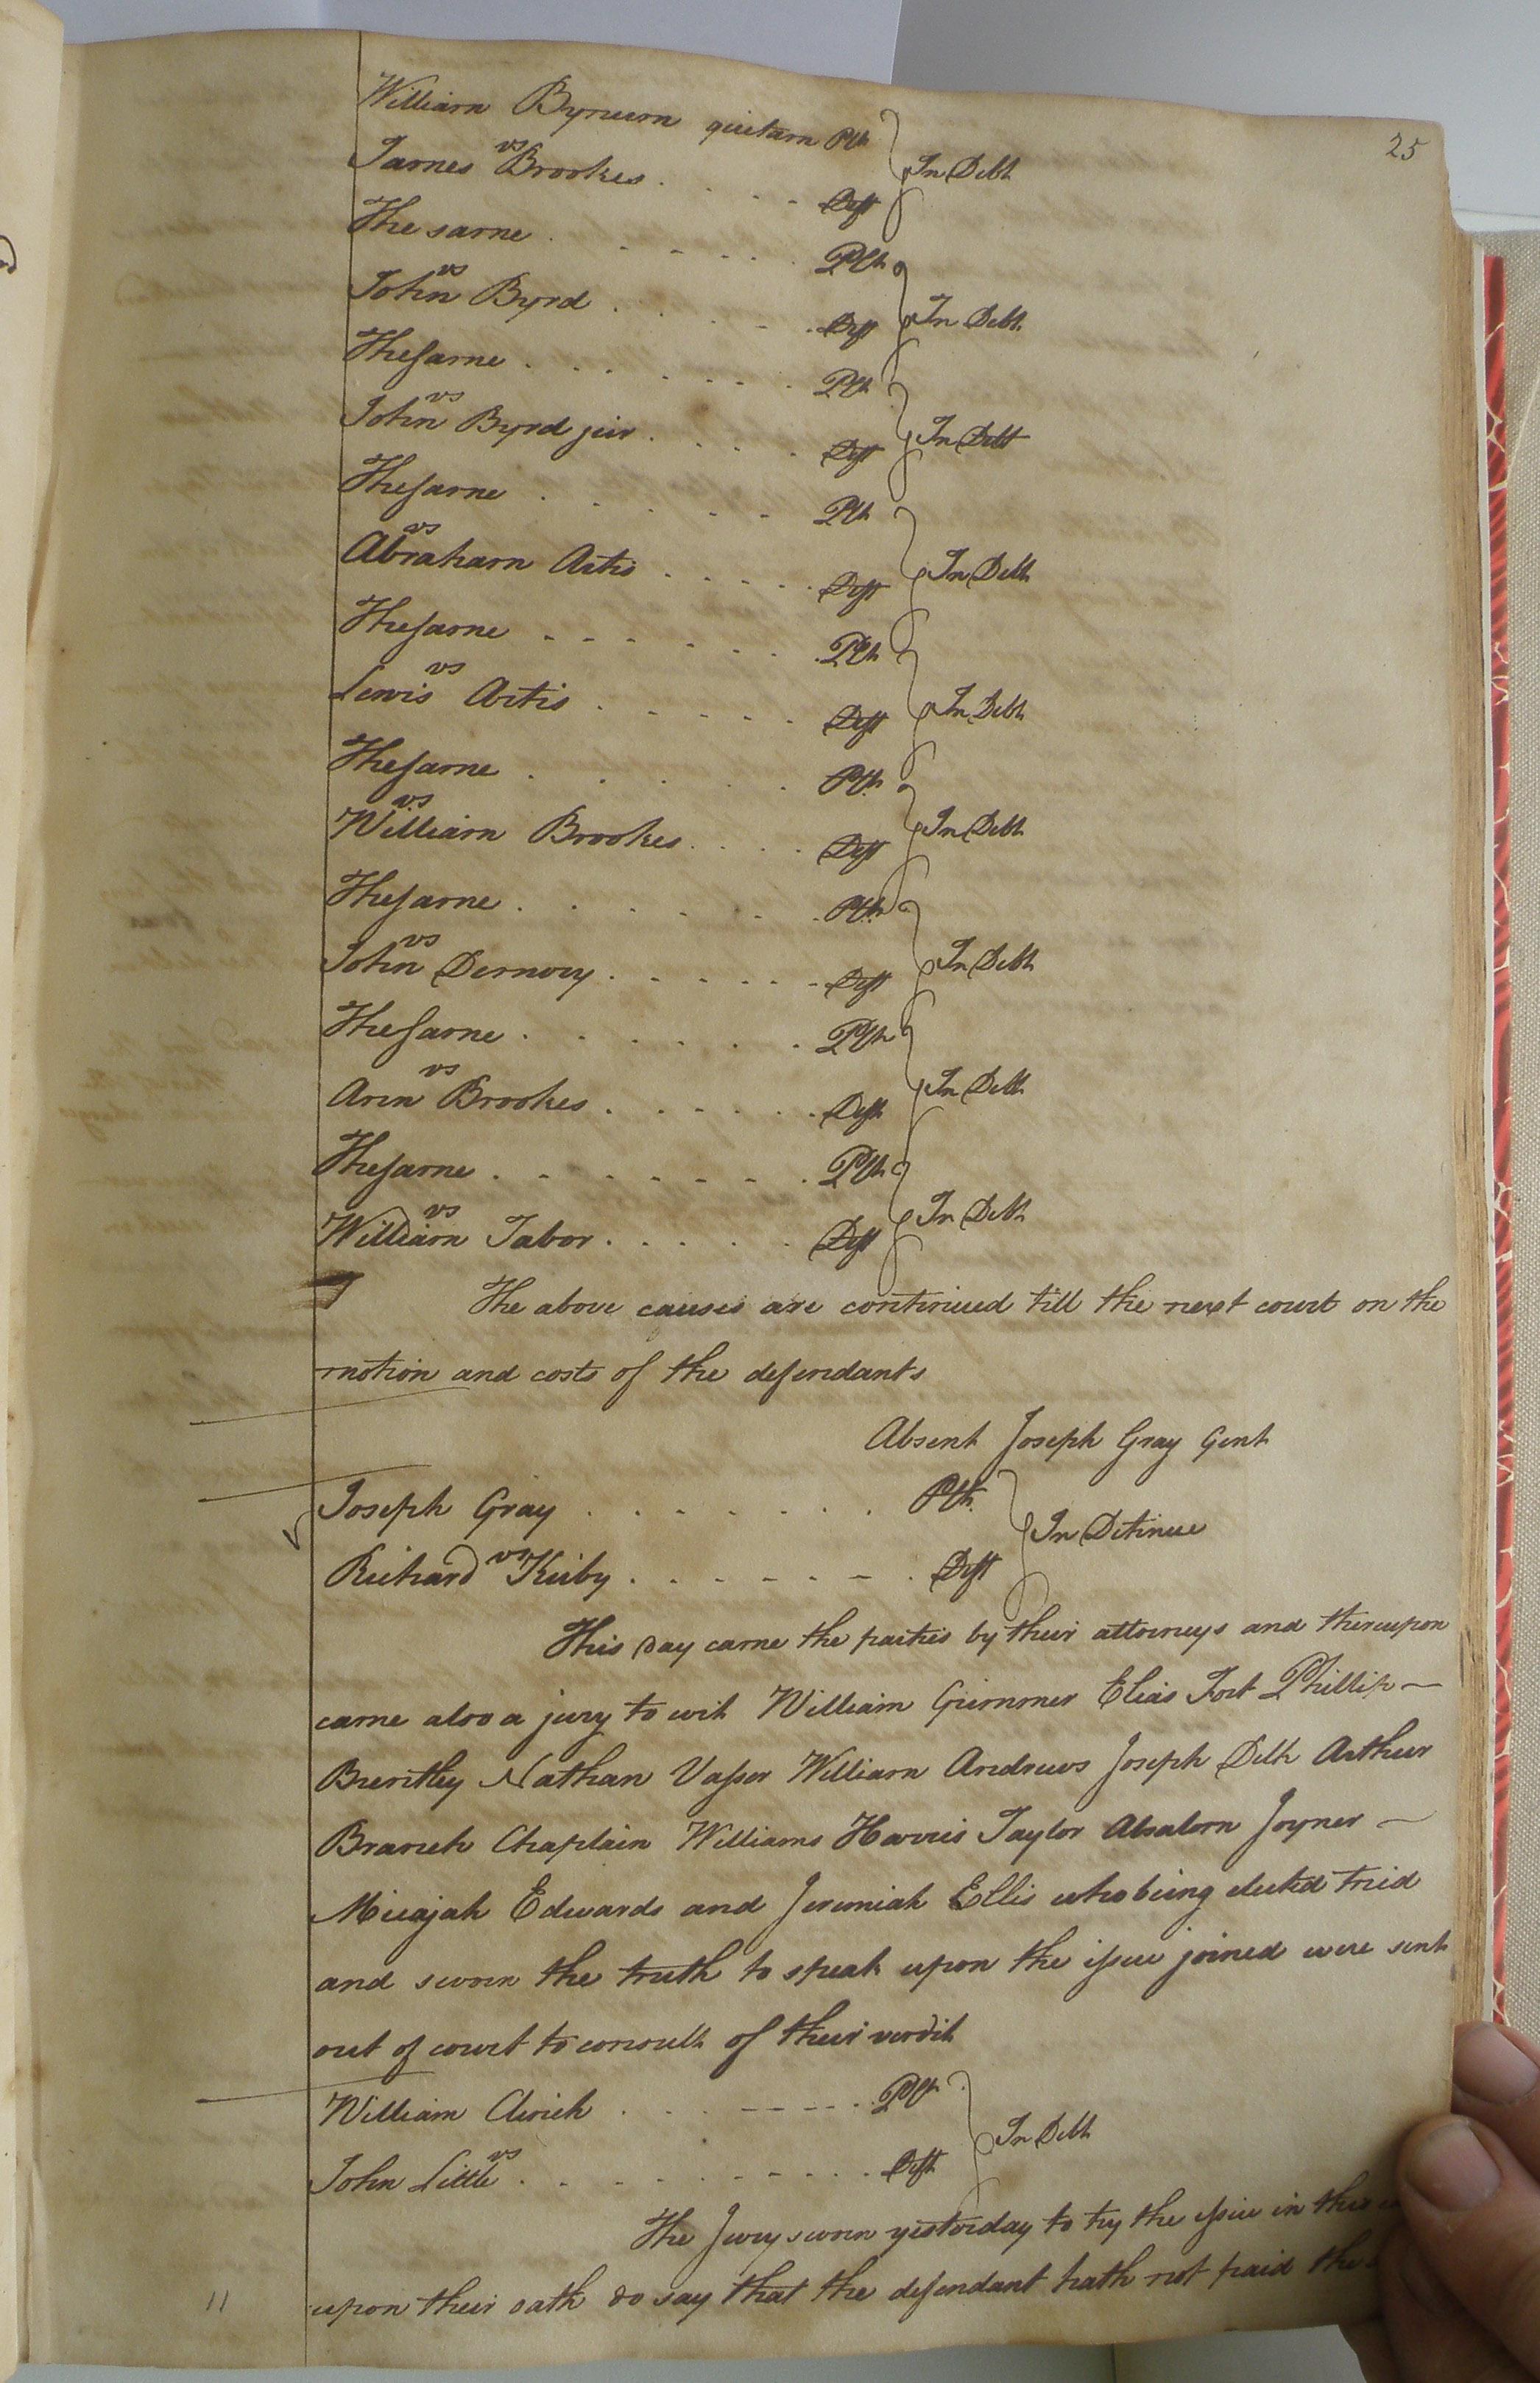 25
William Bynum quitam Plt
vs
James Brookes . . . . Deft
In Debt
The same . . . . . Plt
vs
John Byrd . . . . Deft
In Debt
The same . . . . . . . Plt
vs
John Byrd jur . . . . Deft
In Debt
The same . . . . . Plt
vs
Abraham Artis . . . . . Deft
In Debt
The same . . . . . . . Plt
vs
Lewis Artis . . . . . Deft
In Debt
The same . . . . . Plt
vs
William Brookes . . . . Deft
In Debt
The same . . . . . . Plt
vs
John Demory . . . . . . Deft
In Debt
The same . . . . . . Plt
vs
Ann Brookes . . . . . . Deft
In Debt
The same . . . . . . . Plt
vs
William Tabor . . . . . Deft
In Debt
The above causes are continued till the next court on the
motion and costs of the defendants
Absent Joseph Gray Gent
Joseph Gray . . . . . . . Plt
vs
Richard Kirby . . . . . . . Deft
In Detinue
This day came the parties by their attorneys and thereupon
came also a jury to wit William Grimmer Elias Fort Phillip
Brantley Nathan Vasser William Andrews Joseph Delk Arthur
Branch Chaplain Williams Harris Taylor Absalom Joyner
Micajah Edwards and Jeremiah Ellis who being elected tried
and sworn the truth to speak upon the issue joined were sent
out of court to consult of their verdit
William Clinch . . . . . . . Plt
vs
John Little . . . . . . . . . . Deft
In Debt
The Jury sworn yesterday to try the issue in this
upon their oath do say that the defendant hath not paid the
11